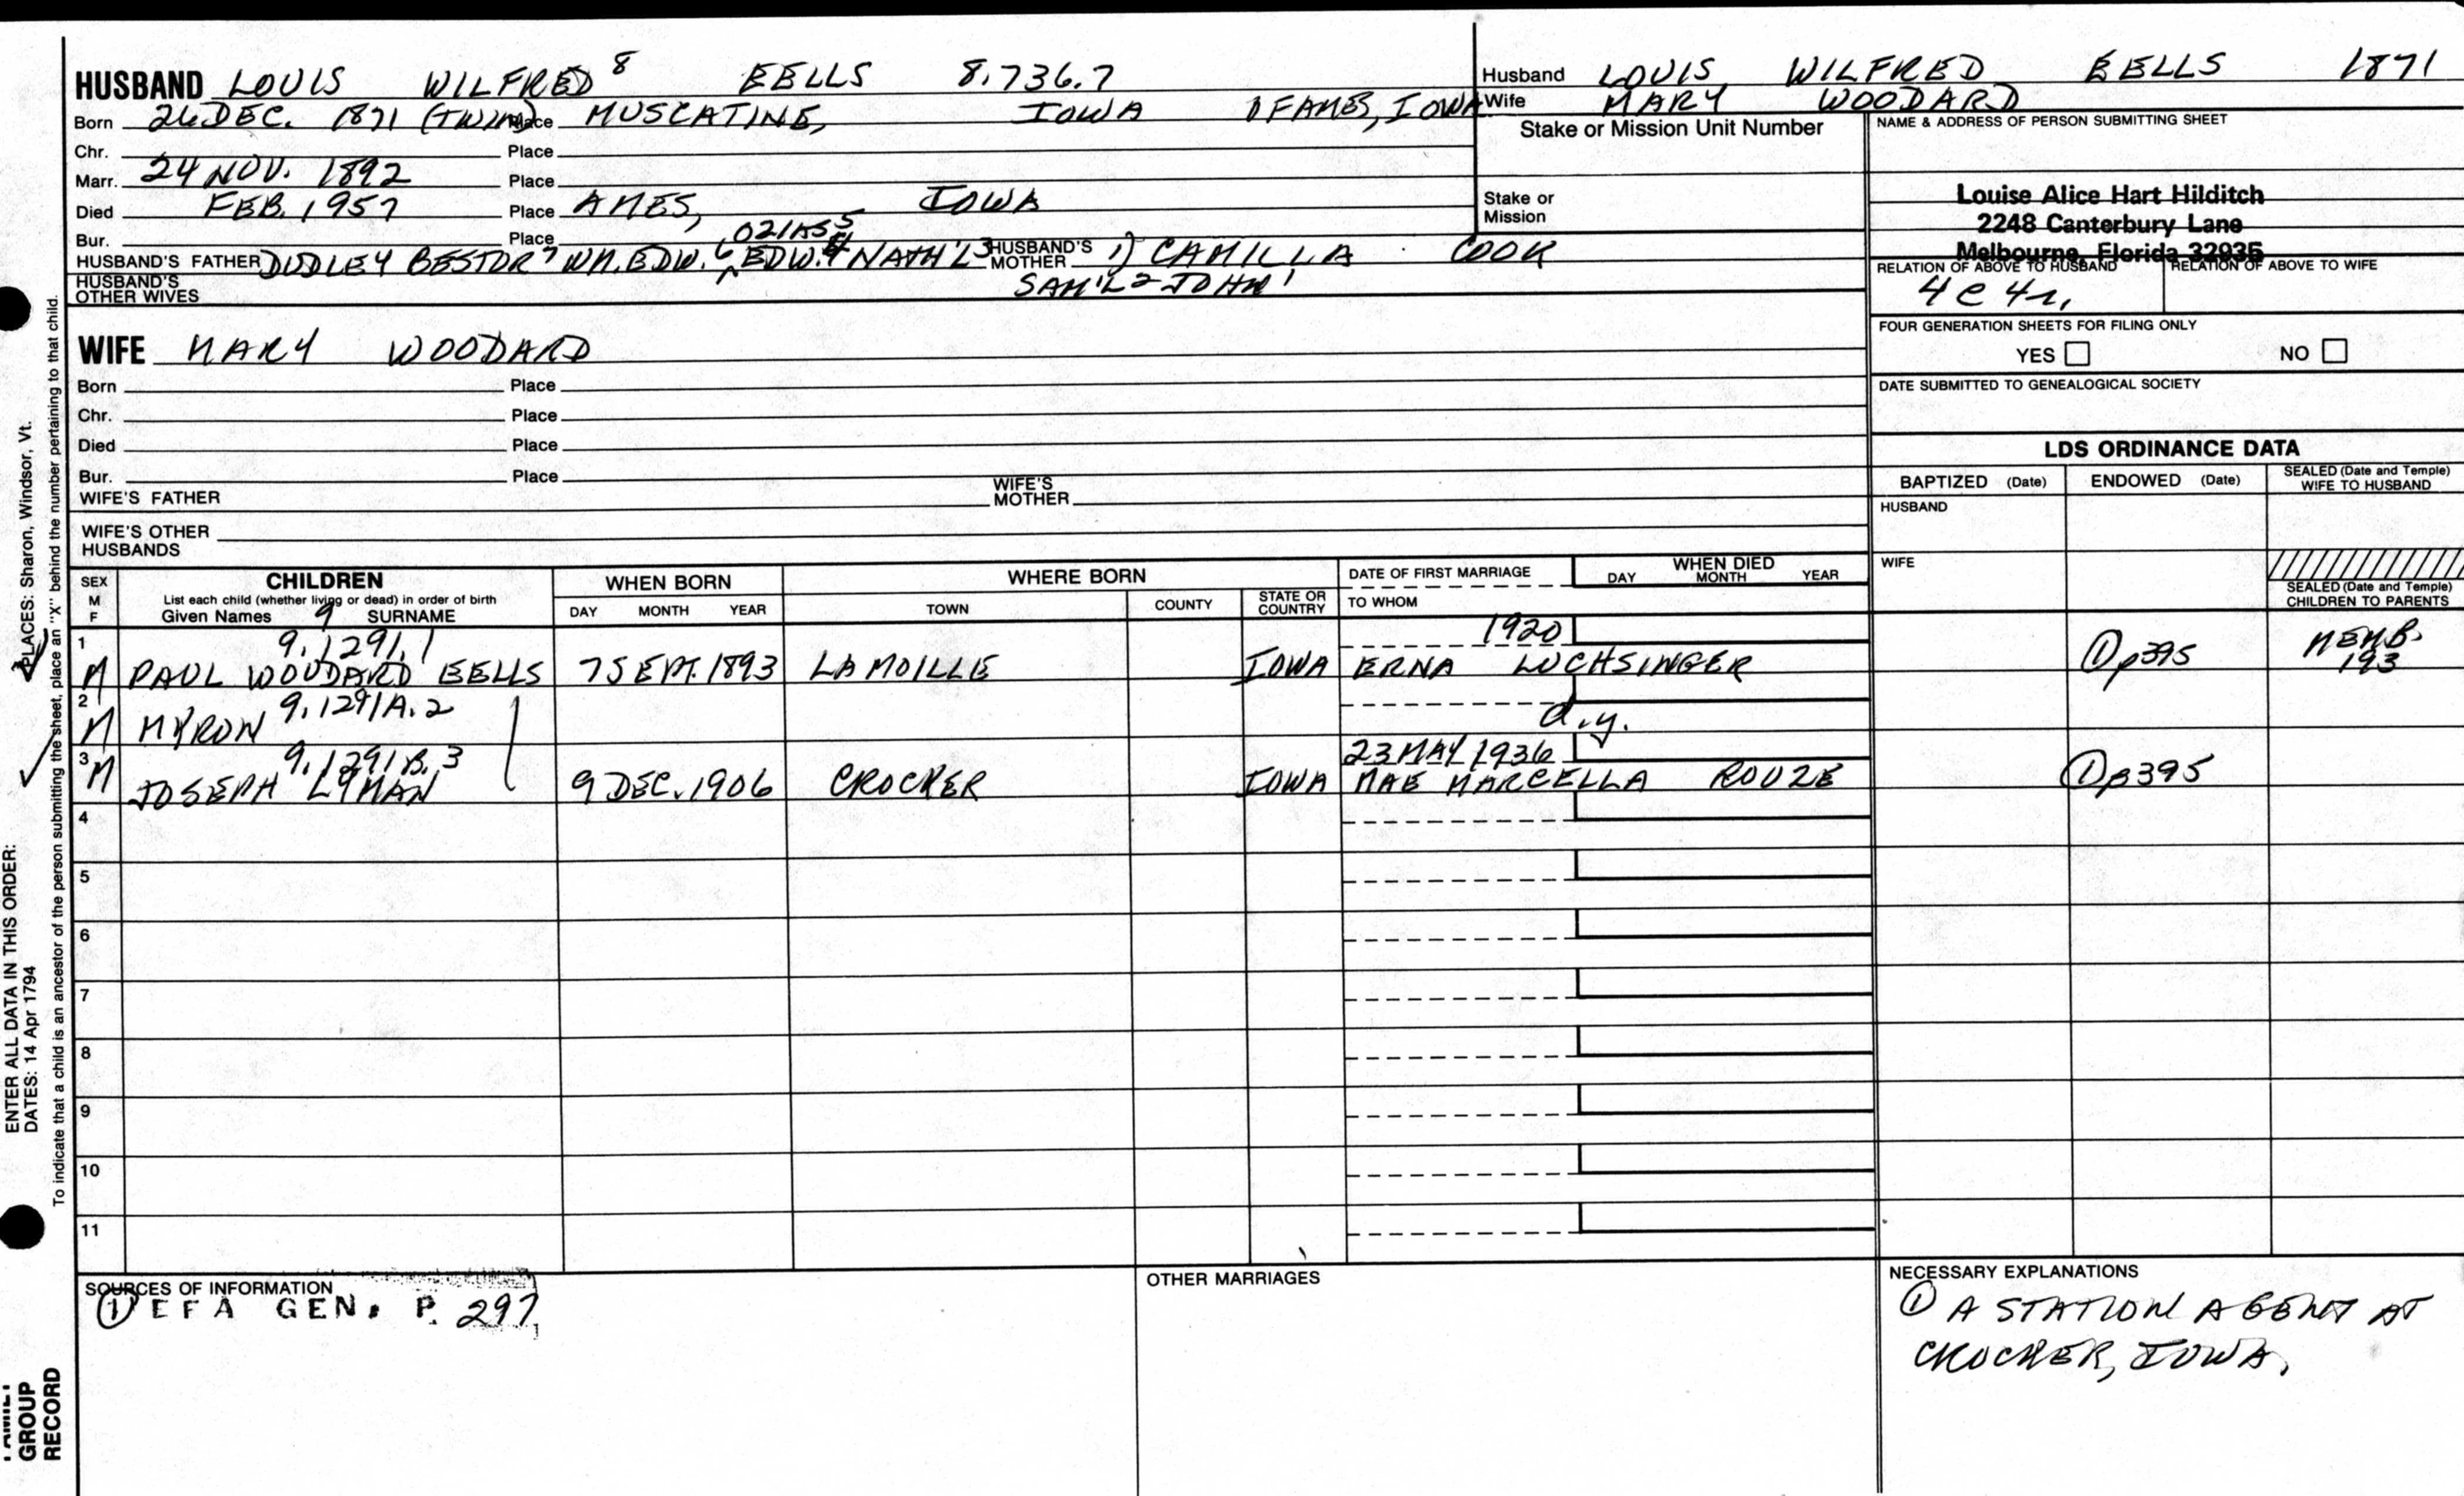 HUSBAND LOUIS WILFRED 8 EELLS 8.736.7
Born 26 DEC. 1871 (TWIN) Place MUSCATINE, IOWA OF AMES, IOWA
Chr. Place
Marr. 24 NOV. 1892 Place
Died FEB. 1957 Place AMES, IOWA
Bur. Place
HUSBAND'S FATHER DUDLEY BESTOR 7 WM. EDW. 6 EDW. 4 NATH'L 3 HUSBAND'S MOTHER 1) CAMILLA COOK
SAM'L 2 JOHN 1
HUSBAND'S OTHER WIVES
Husband LOUIS WILFRED EELLS 1871
Wife MARY WOODARD
Stake or Mission Unit Number
Stake or Mission
NAME & ADDRESS OF PERSON SUBMITTING SHEET
Louise Alice Hart Hilditch
2248 Canterbury Lane
Melbourne, Florida 32935
RELATION OF ABOVE TO HUSBAND RELATION OF ABOVE TO WIFE
4 c 4 r.
FOUR GENERATION SHEETS FOR FILING ONLY
YES NO
DATE SUBMITTED TO GENEALOGICAL SOCIETY
WIFE MARY WOODARD
Born Place
Chr. Place
Died Place
Bur. Place
WIFE'S FATHER WIFE'S MOTHER
WIFE'S OTHER HUSBANDS
LDS ORDINANCE DATA
BAPTIZED (Date) ENDOWED (Date) SEALED (Date and Temple) WIFE TO HUSBAND
HUSBAND
WIFE
SEALED (Date and Temple) CHILDREN TO PARENTS
SEX M F
CHILDREN
List each child (whether living or dead) in order of birth
Given Names 9 SURNAME
WHEN BORN
DAY MONTH YEAR
WHERE BORN
TOWN COUNTY STATE OR COUNTRY
DATE OF FIRST MARRIAGE
TO WHOM
WHEN DIED
DAY MONTH YEAR
1 9.1291.1 1920
M PAUL WOODARD EELLS 7 SEPT. 1893 LAMOILLE IOWA ERNA LUCHSINGER ① p395 MEMB. 193
2 9.1291A.2
M MYRON d.y.
3 9.1291B.3 23 MAY 1936
M JOSEPH LYMAN 9 DEC. 1906 CROCKER IOWA MAE MARCELLA ROUZE ① p395
4
5
6
7
8
9
10
11
SOURCES OF INFORMATION
① EFA GEN. P. 297
OTHER MARRIAGES
NECESSARY EXPLANATIONS
① A STATION AGENT AT
CROCKER, IOWA.
ENTER ALL DATA IN THIS ORDER:
DATES: 14 Apr 1794
PLACES: Sharon, Windsor, Vt.
To indicate that a child is an ancestor of the person submitting the sheet, place an "X" behind the number pertaining to that child.
FAMILY
GROUP
RECORD